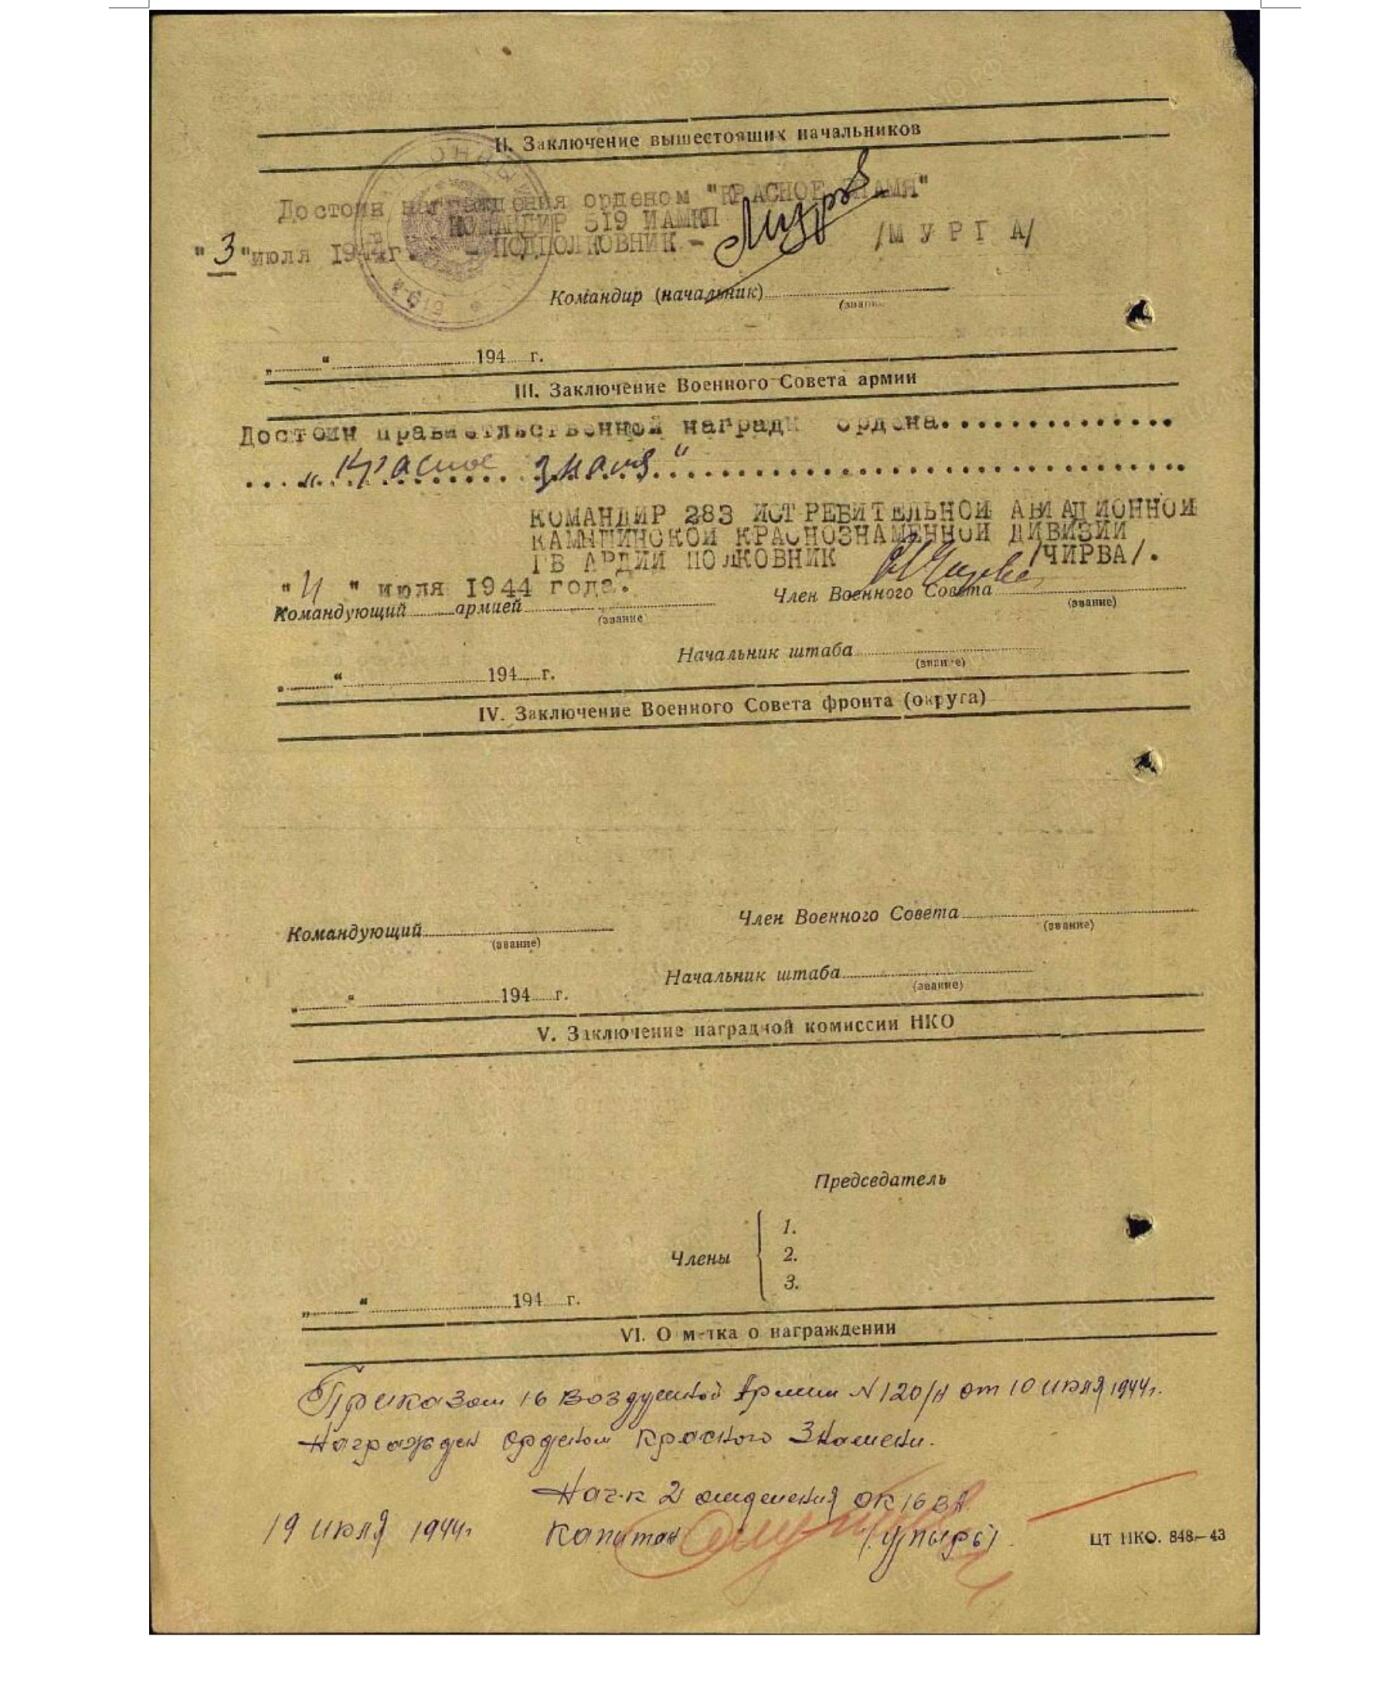 II. Заключение вышестоящих начальников
Достоин награждения орденом "КРАСНОЕ ЗНАМЯ"
КОМАНДИР 519 ИАМКП
"3" июля 1944г. ПОДПОЛКОВНИК - /МУРГА/
Командир (начальник)
(звание)
„ “ 194 г.
III. Заключение Военного Совета армии
Достоин правительственной награды ордена
„Красное знамя“
КОМАНДИР 283 ИСТРЕБИТЕЛЬНОЙ АВИАЦИОННОЙ
КАМЫШИНСКОЙ КРАСНОЗНАМЕННОЙ ДИВИЗИИ
ГВАРДИИ ПОЛКОВНИК /ЧИРВА/.
" " июля 1944 года.
Командующий армией Член Военного Совета
(звание) (звание)
Начальник штаба
(звание)
„ “ 194 г.
IV. Заключение Военного Совета фронта (округа)
Командующий Член Военного Совета
(звание) (звание)
Начальник штаба
(звание)
„ “ 194 г.
V. Заключение наградной комиссии НКО
Председатель
1.
Члены 2.
3.
„ “ 194 г.
VI. Отметка о награждении
Приказом 16 Воздушной Армии №120/н от 10 июля 1944г.
Награжден орденом Красного Знамени.
Нач-к 2 отделения ОК 16 ВА
19 июля 1944г Капитан (Упырь)
ЦТ НКО. 848—43